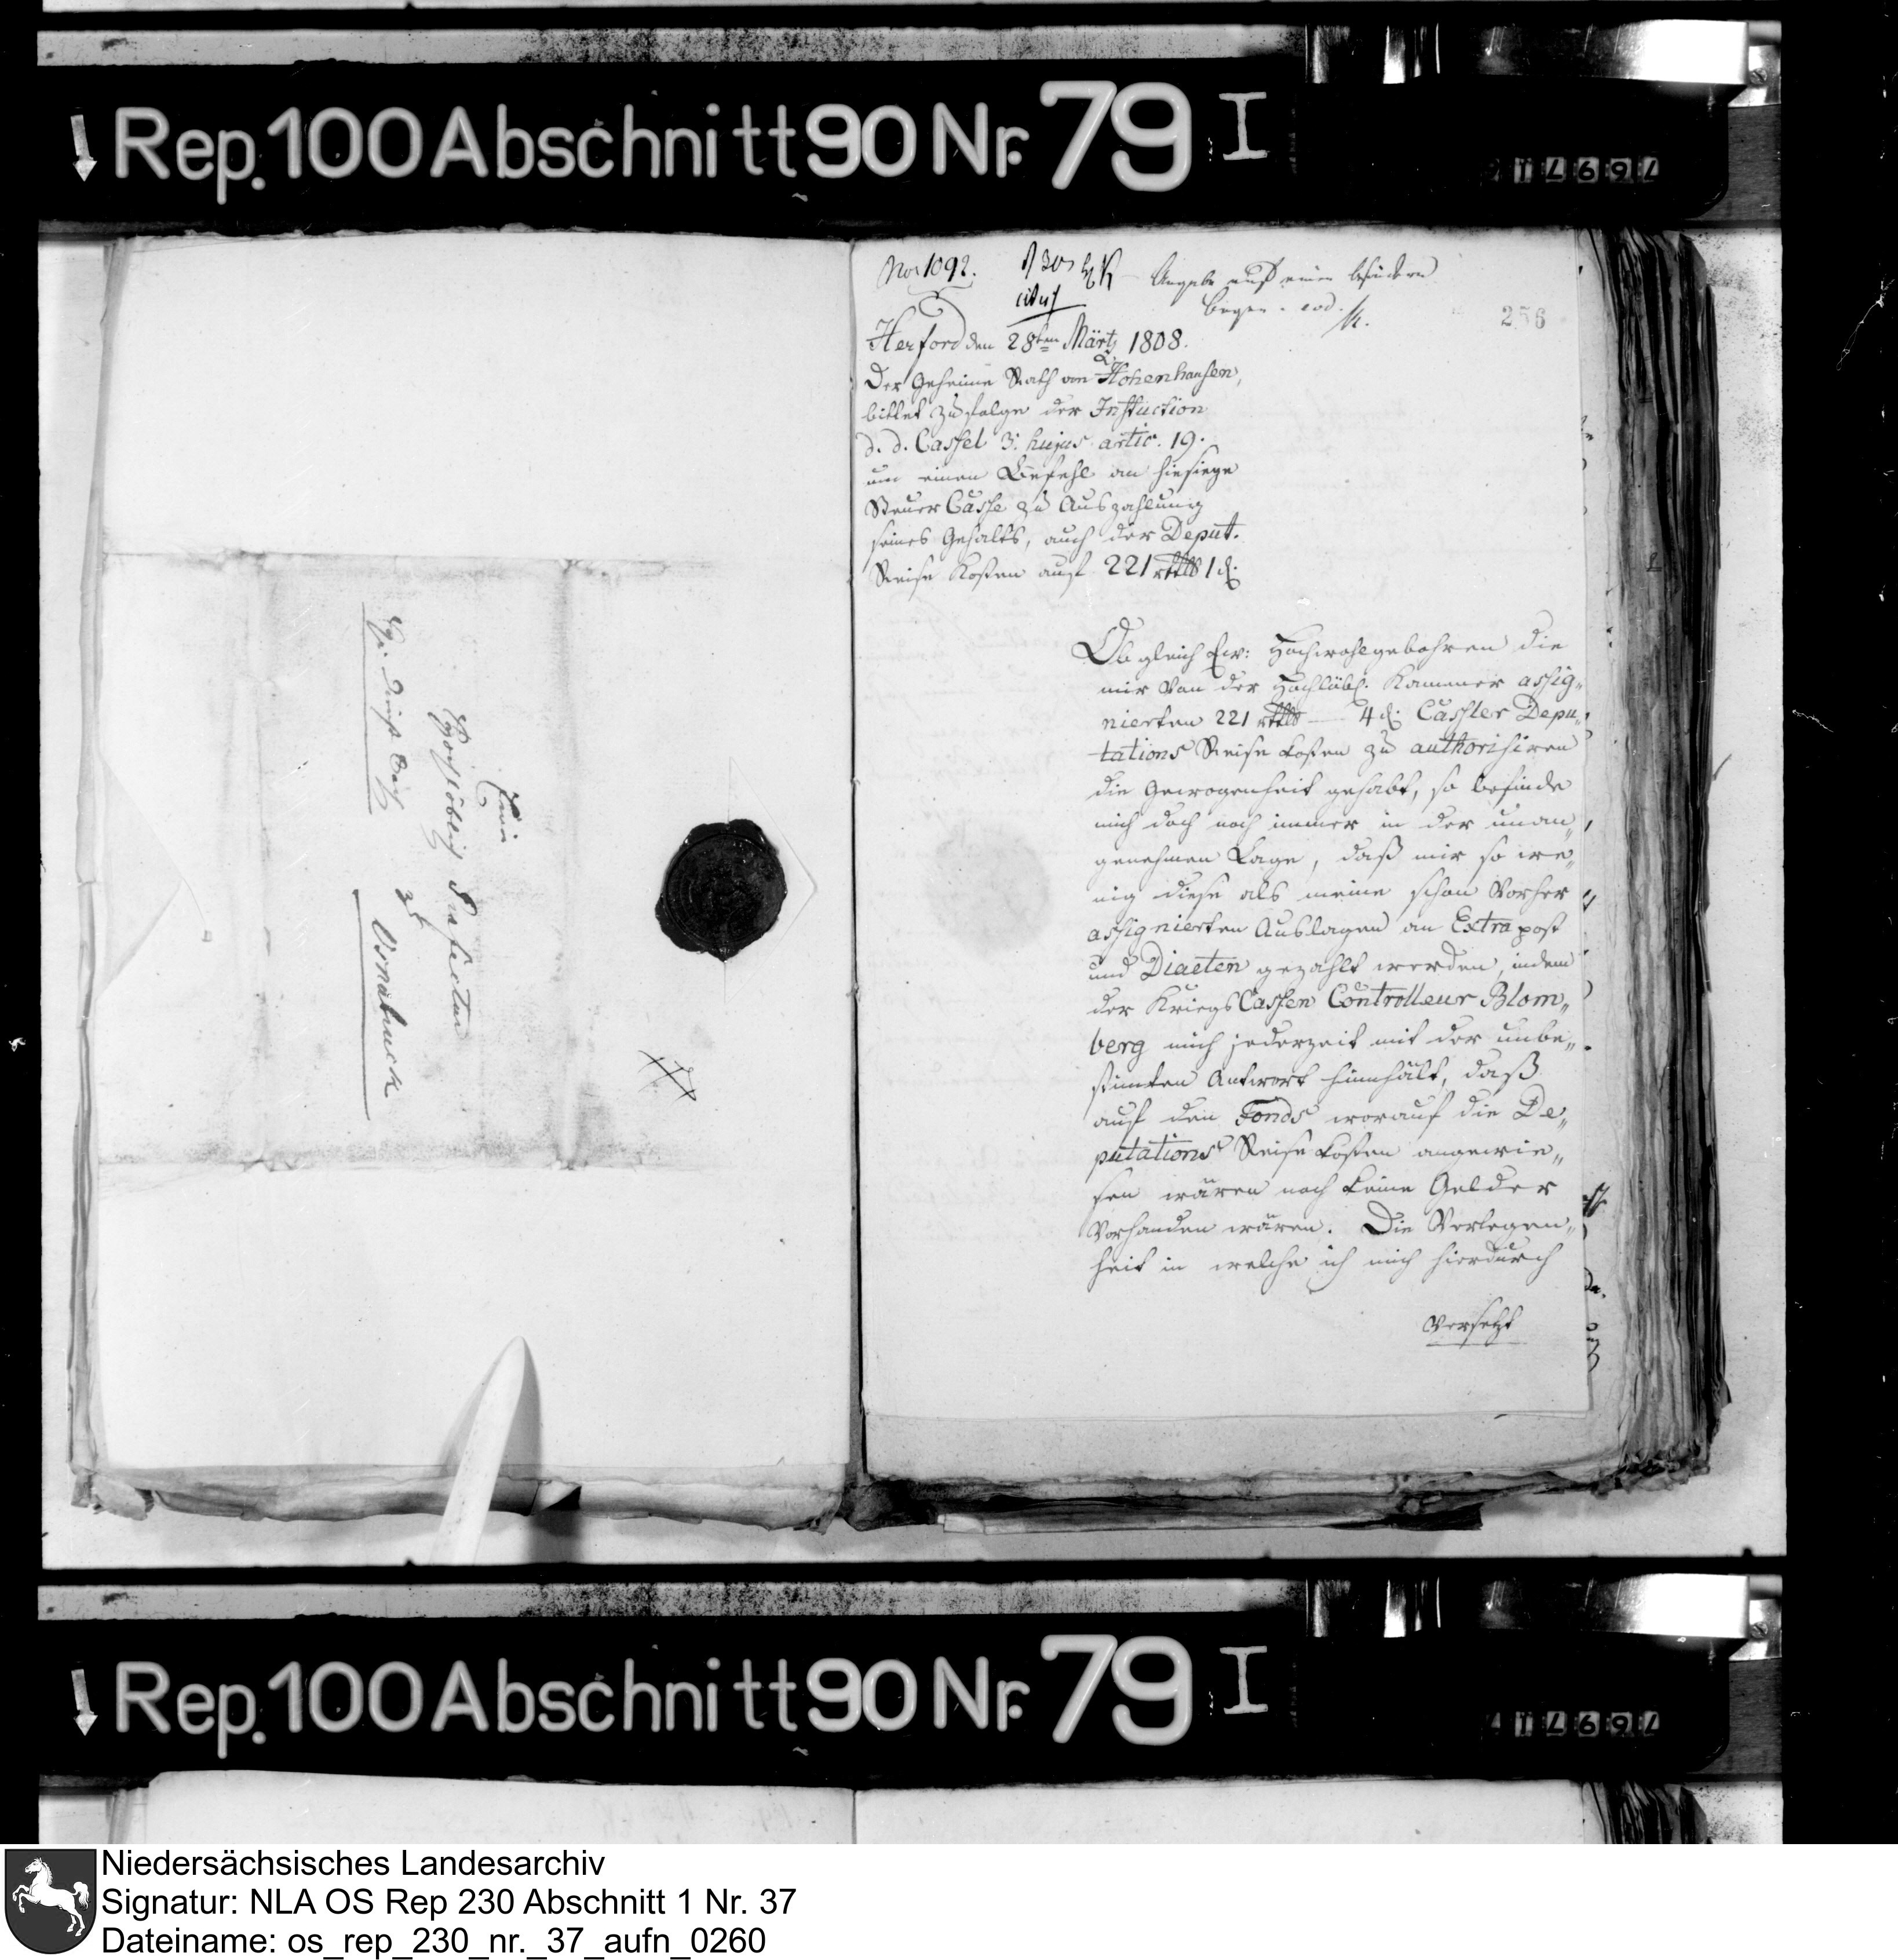 Rep. 100 Abschnitt 90 Nr. 79 I
Einer
Hochlöblich Präfectur
zu
Osnabruck
No. 1092.
256
Herford den 28ten Märtz 1808.
Der Geheime Rath von Hohenhausen,
bittet zufolge der Instuction
d. d. Cassel 3. hujus artic. 19.
um einen Befehl an hiesiege
Steuer Casse zu Auszahlung
seines Gehalts, auch der Deput.
Reise Kosten auf 221 rthlr 1 d.
Obgleich Ew: Hochwohlgebohren die
mir von der Hochlöbl. Kammer assig„
nierten 221 rthlr — 4 d. Cassler Depu„
tations Reise kosten zu authorisiren
die Gewogenheit gehabt, so befinde
mich doch noch immer in der unan„
genehmen Lage, daß mir so we„
nig diese als meine schon vorher
assignierten Auslagen an Extra post
und Diaeten gezahlt werden, indem
der Kriegs Cassen Controlleur Blom„
berg mich jederzeit mit der unbe„
stimten Antwort hinhält, daß
auf den Fonds worauf die De„
putations Reise kosten angewie„
sen wären noch keine Gelder
vorhanden wären. Die Verlegen„
heit in welche ich mich hierdurch
versetzt
Rep. 100 Abschnitt 90 Nr. 79 I
Niedersächsisches Landesarchiv
Signatur: NLA OS Rep 230 Abschnitt 1 Nr. 37
Dateiname: os_rep_230_nr._37_aufn_0260